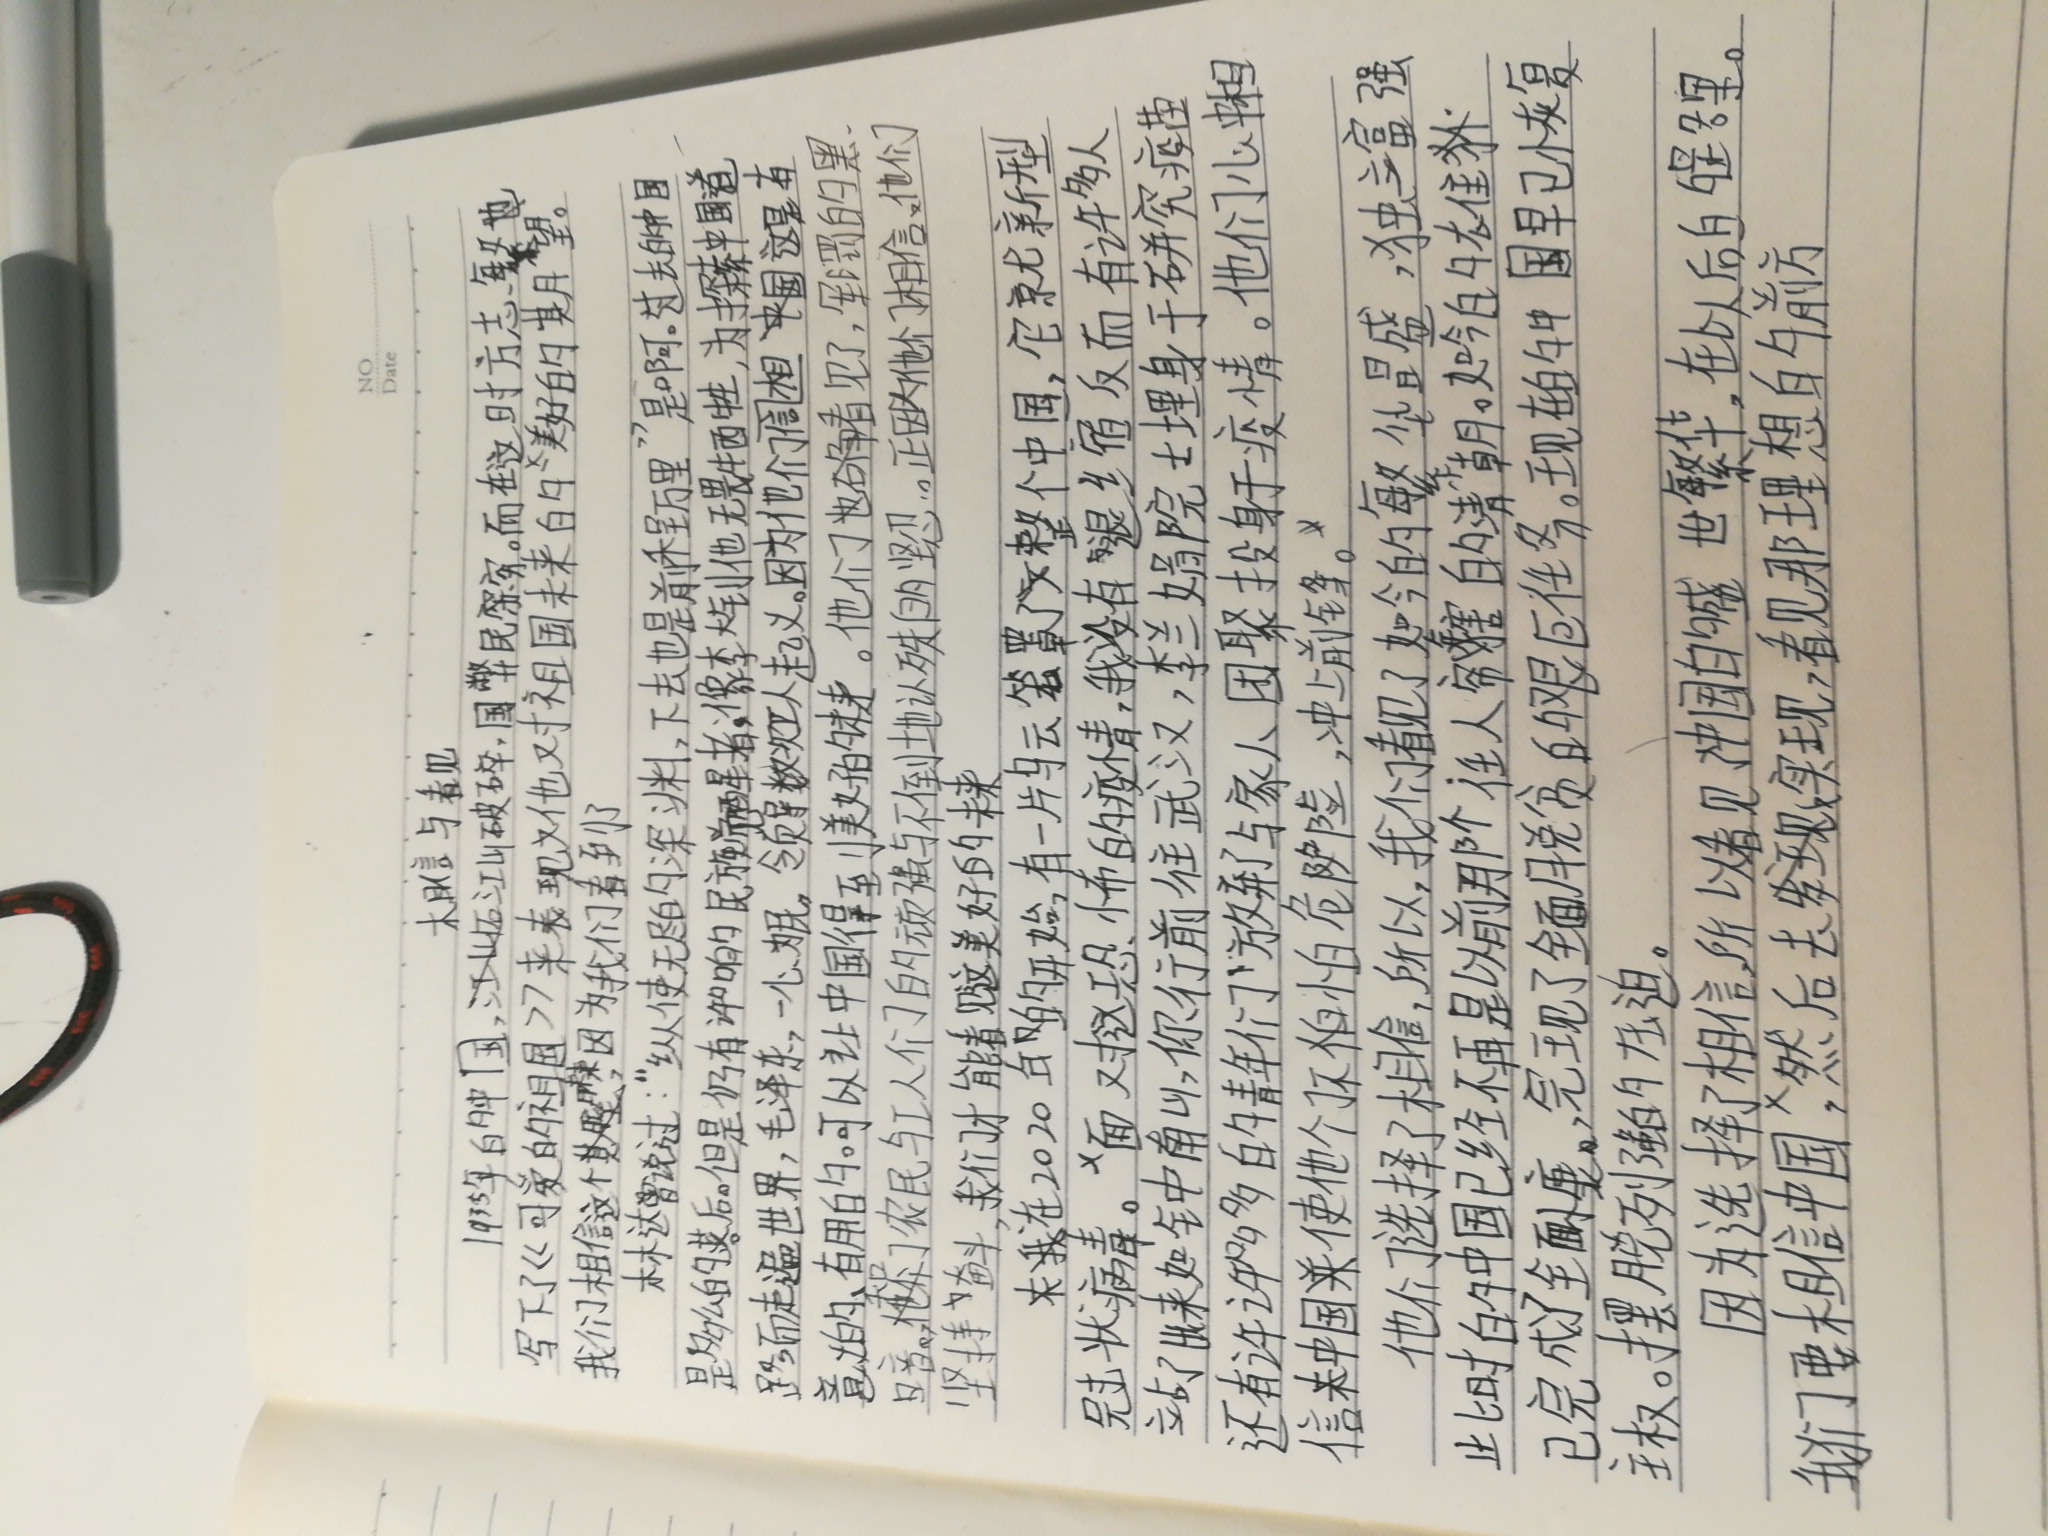 NO
Date
相信与看见
1935年的中国,江山破碎,国弊民穷。而在这时方志敏也
写下了《可爱的祖国》来表现义他又对祖国未来的美好的期望。
我们相信这个期望,因为我们看到了
林达曾说过:"纵使无路的深渊,下去也是前程万里"是啊。过去的中国
是多么的落后。但是仍有许许的民族着,像李大钊他无畏牺牲,为探索中国道
路,而走遍世界,毛泽东,一心为民,领导数次工人走义。因为他们信相中国这是有
意义的,有用的。可以让中国得到美好的未来。他们也看见了,军阀的黑
暗,农民与工人们的顽强与不倒地认殊的坚忍。正因为他们相信,他们
坚持与奋斗,我们才能看见这美好的未来
我在2020年的开始,有一片乌云笼罩了整个中国,它就是新型
冠状病毒。面对这恐怖的疫情,我没有退缩反而有许多人
站了出来如钟南山,你行前往武汉,李兰娟院士埋身于研究疫苗
还有许许多多的青年们放弃了与家人团聚投身于疫情。他们心中相
信中国来使他们不怕危险,冲上前锋。
他们选择了相信,所以,我们看见了如今的每华昌盛,独立富强
此时的中国已经不再是以前那个任人宰割的清朝。如今的衣住
已完成了全面小康。,完现了全面脱贫的艰巨任务。现在的中国早已恢复
主权。摆脱列强的压迫。
因为选择了相信所以看见中国的盛世繁华,在以后的日子里。
我们要相信中国,然后去发现,实现,看见那理想的前方